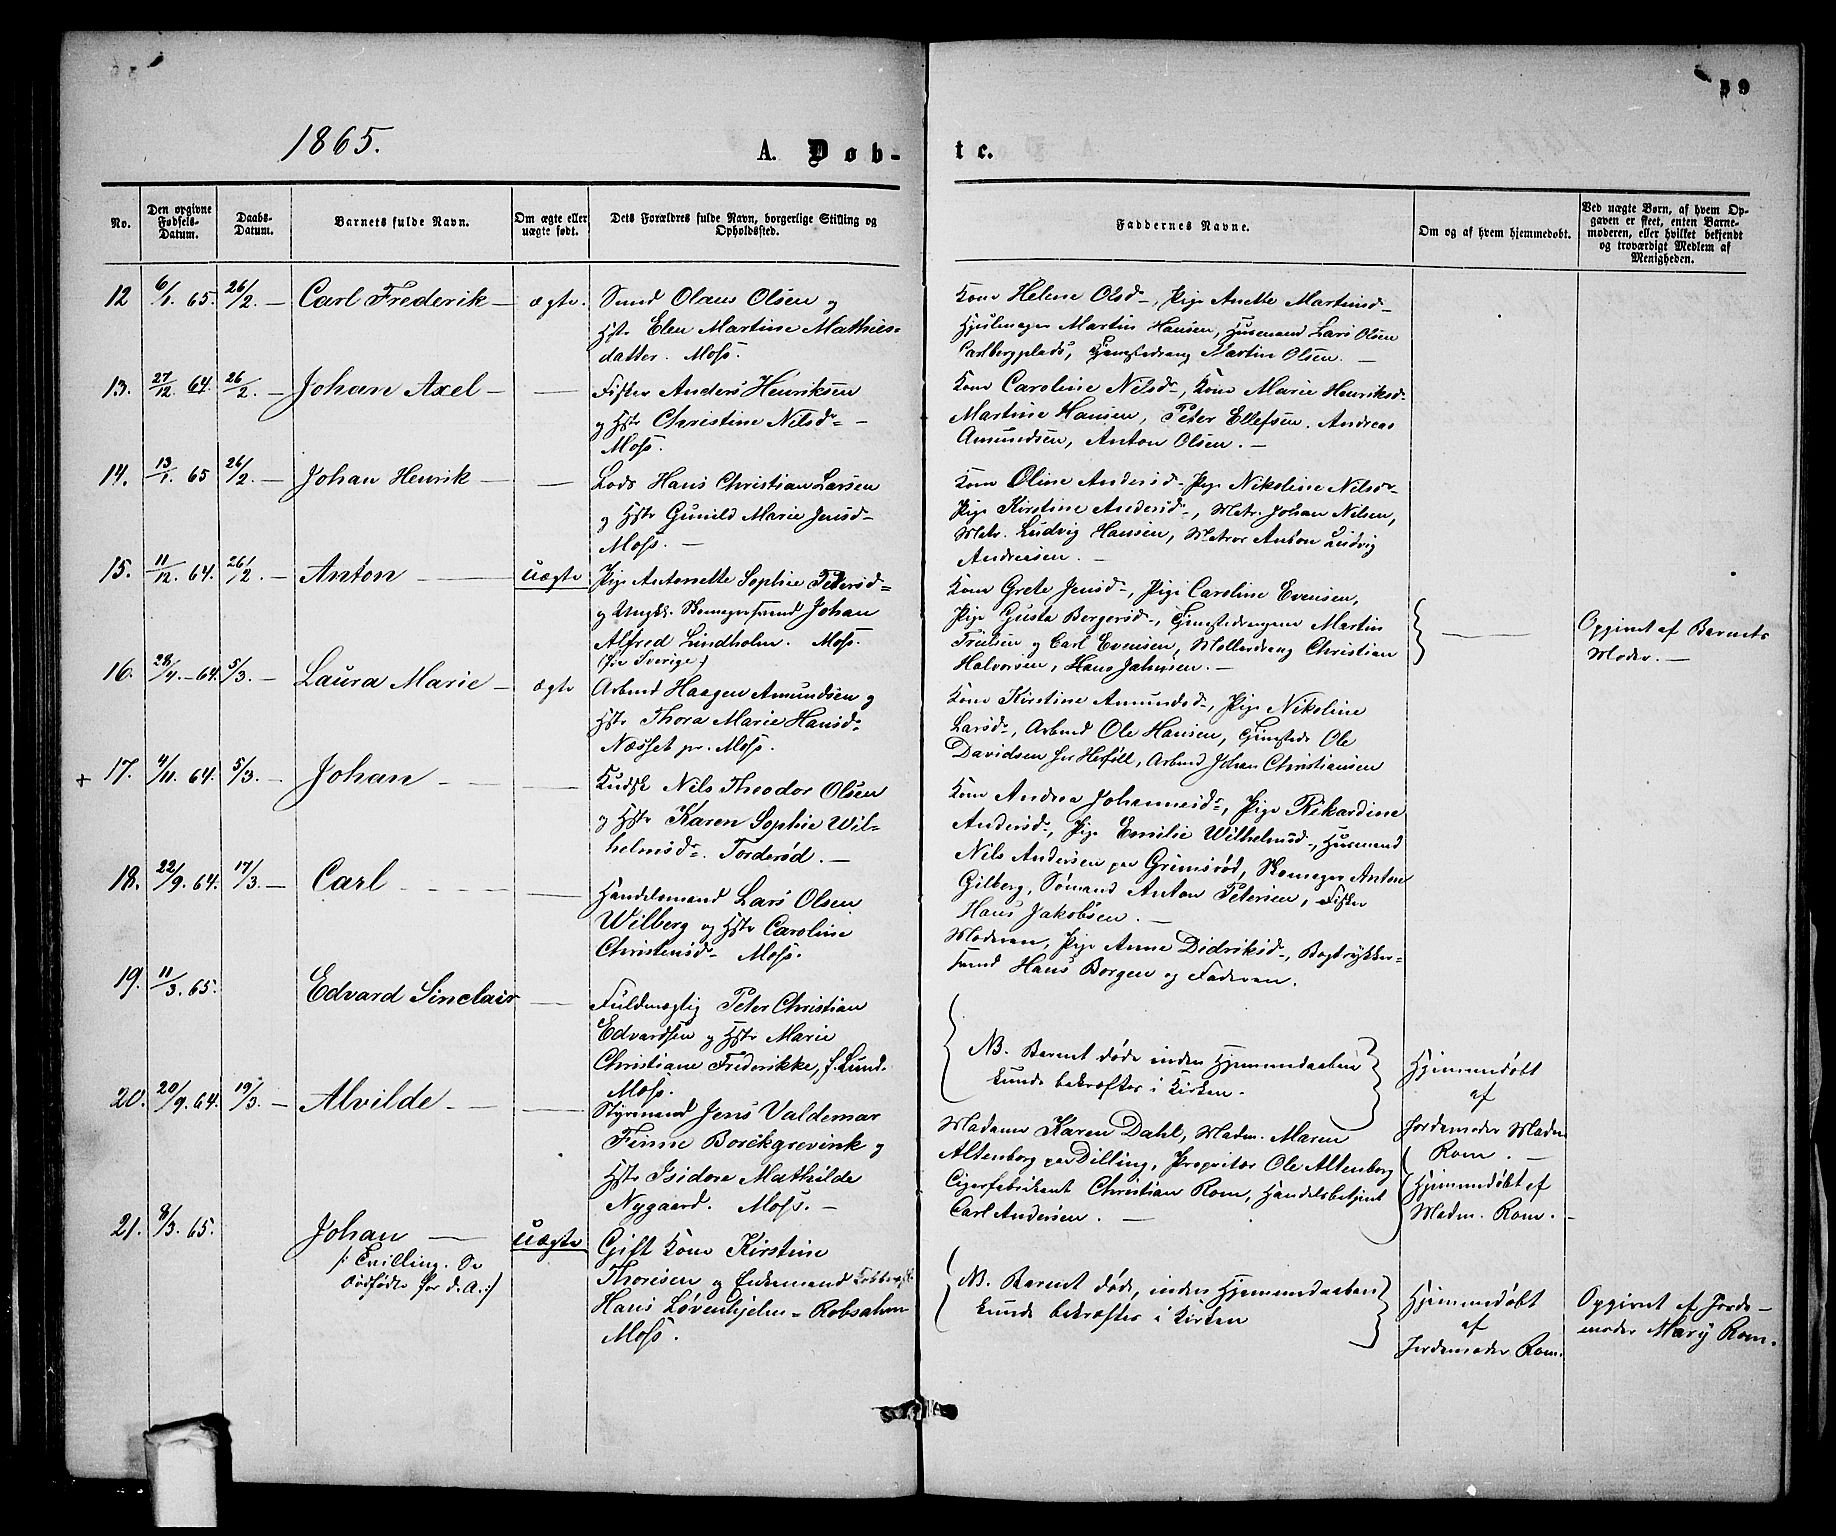 59
1865.
A. Døb-
te.
No.
Den opgivne Fødsels-Datum.
Daabs-Datum.
Barnets fulde Navn.
Om ægte eller uægte født.
Dets Forældres fulde Navn, borgerlige Stilling og Opholdssted.
Faddernes Navne.
Om og af hvem hjemmedøbt.
Ved uægte Børn, af hvem Opgaven er skeet, enten Barnemoderen, eller hvilket bekjendt og troværdigt Medlem af Menigheden.
12 6/1. 65. 26/2. - Carl Frederik - ægte.
Smed Olaus Olsen og
Hstr Elen Martine Mathies-
datter. Moss.
Kone Helene Olsd-, Pige Anette Martinsd
Hjulmager Martin Hansen, Husmand Lars Olsen
Carlbergplads, Martin Olsen. -
13. 27/12. 64. 26/2. - Johan Axel -
Fisker Anders Henriksen
og Hstr Christine Nilsd= -
Moss.
Kone Caroline Nilsd-, Kone Marie Henriksd-
Martine Hansen, Peter Ellefsen. Andreas
Amundsen, Anton Olsen. -
14. 13/1. 65 26/2. - Johan Henrik -
Lods Hans Christian Larsen
og Hstr Gunild Marie Jensd-
Moss. -
Kone Oline Andersd-, Pige Nikoline Nilsd-
Pige Kirstine Andersd-, Matr. Johan Nilsen,
Matr. Ludvig Hansen, Matros Anton Ludvig
Andreasen. -
15. 11/12. 64. 26/2. - Anton - uægte
Pige Antonette Sophie Petersd=
og Ungk. Skomagersvend Johan
Alfred Lindholm. Moss.
(fra Sverige)
Kone Grete Jensd-, Pige Caroline Evensen,
Pige Gusta Bergersd-, Martin
Truelsen og Carl Evensen, Møllerdreng Christian
Halvorsen, Hans Jahnsen. -
Opgivet af Barnets
Moder. -
16. 28/4. - 64. 5/3. - Laura Marie - ægte
Arbmd Haagen Amundsen og
Hstr Thora Marie Hansd-
Næsset pr. Moss.
Kone Kirstine Amundsd-, Pige Nikoline
Larsd-, Arbmd Ole Hansen, Ole
Davidsen fra Herføll, Arbmd Johan Christiansen
+ 17. 4/11. 64. 5/3. - Johan -
Kudsk Nils Theodor Olsen
og Hstr Karen Sophie Wil=
helmsd-. Torderød. -
Kone Andrea Johannesd-, Pige Rikardine
Andersd-, Pige Emilie Wilhelmsd-, Husmand
Nils Andersen paa Grimsrød, Skomager Anton
Gilberg, Sømand Anton Petersen, Fisker
Hans Jakobsen. -
18. 22/9. 64. 17/3. - Carl -
Handelsmand Lars Olsen
Wilberg og Hstr Caroline
Christensd- Moss.
Moderen, Pige Anne Didriksd-, Bogtrykker=
svend Hans Borgen og Faderen.
19. 11/3. 65. Edvard Sinclair
Fuldmægtig Peter Christian
Edvardsen og Hstr Marie
Christiane Frederikke, f. Lund.
Moss.
NB. Barnet døde inden Hjemmedaaben
kunde bekræftes i Kirken.
Hjemmedøbt
af
Jordemoder Madm
Rom. -
20. 20/9. 64. 19/3. - Alvilde -
Styrmand Jens Valdemar
Finne Borchgrevink og
Hstr Isidore Mathilde
Nygaard. Moss. -
Madame Karen Dahl, Madm. Maren
Altenborg paa Dilling, Proprietær Ole Altenborg
Cigarfabrikant Christian Rom, Handelsbetjent
Carl Andersen. -
Hjemmedøbt af
Madm. Rom. -
21. 8/3. 65. Johan - uægte
/: Tvilling. Se
Dødfødte for d. A. :/
Gift Kone Kirstine
Thoresen og Enkemand
Hans Løvenhjelm = Robsahm
Moss.
NB. Barnet døde, inden Hjemmedaaben
kunde bekræftes i Kirken
Hjemmedøbt
af
Jordemoder Rom.
Opgivet af Jorde-
moder Mary Rom.